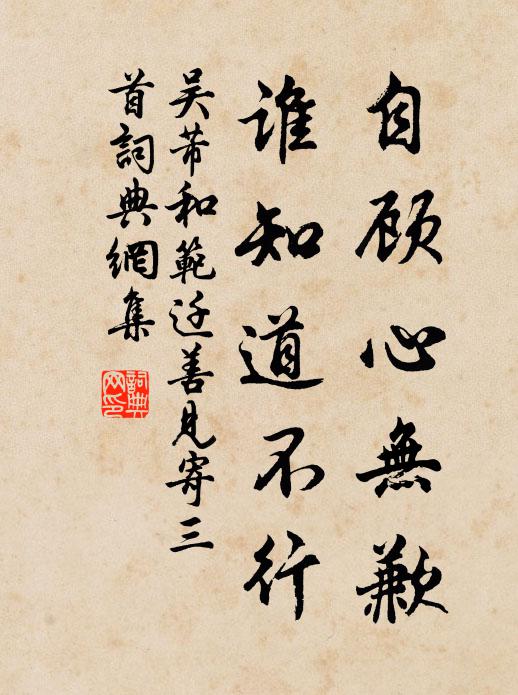 自顾心無歉
谁知道不行
吴芾和範迁善見寄三
首詞典網集
詞典
网印